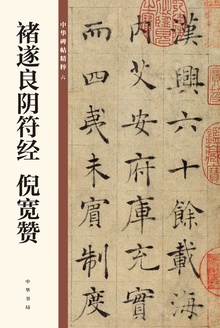 中华碑帖精粹 六
褚遂良阴符经 倪宽赞
中华书局
漢興六十餘載海
內艾安府庫充實
而四夷未賓制度